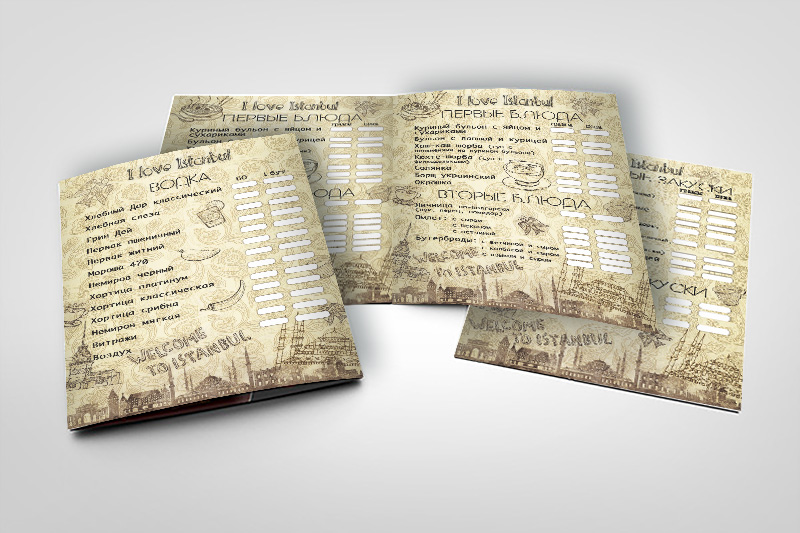 I love Istanbul
ВОДКА
50 1 бут
Хлебный Дар классический
Хлебная слеза
Грин Дей
Первак пшеничный
Первак житний
Мороша 470
Немиров черный
Хортица платинум
Хортица классическая
Хортица срибна
Немироч мягкая
Витражи
Воздух
WELCOME
TO ISTANBUL
I love Istanbul
ПЕРВЫЕ БЛЮДА
Куриный бульон с яйцом и
сухариками
I love Istanbul
ПЕРВЫЕ БЛЮДА
Куриный бульон с яйцом и
сухариками
Бульон с лапшой и курицей
Солянка
Борщ украинский
Окрошка
ВТОРЫЕ БЛЮДА
Омлет: с сыром
с беконом
с ветчиной
Бутерброды: с ветчиной и сыром
с колбасой и сыром
WELCOME
TO ISTANBUL
Istanbul
ЗАКУСКИ
WELCOME
TO ISTANBUL